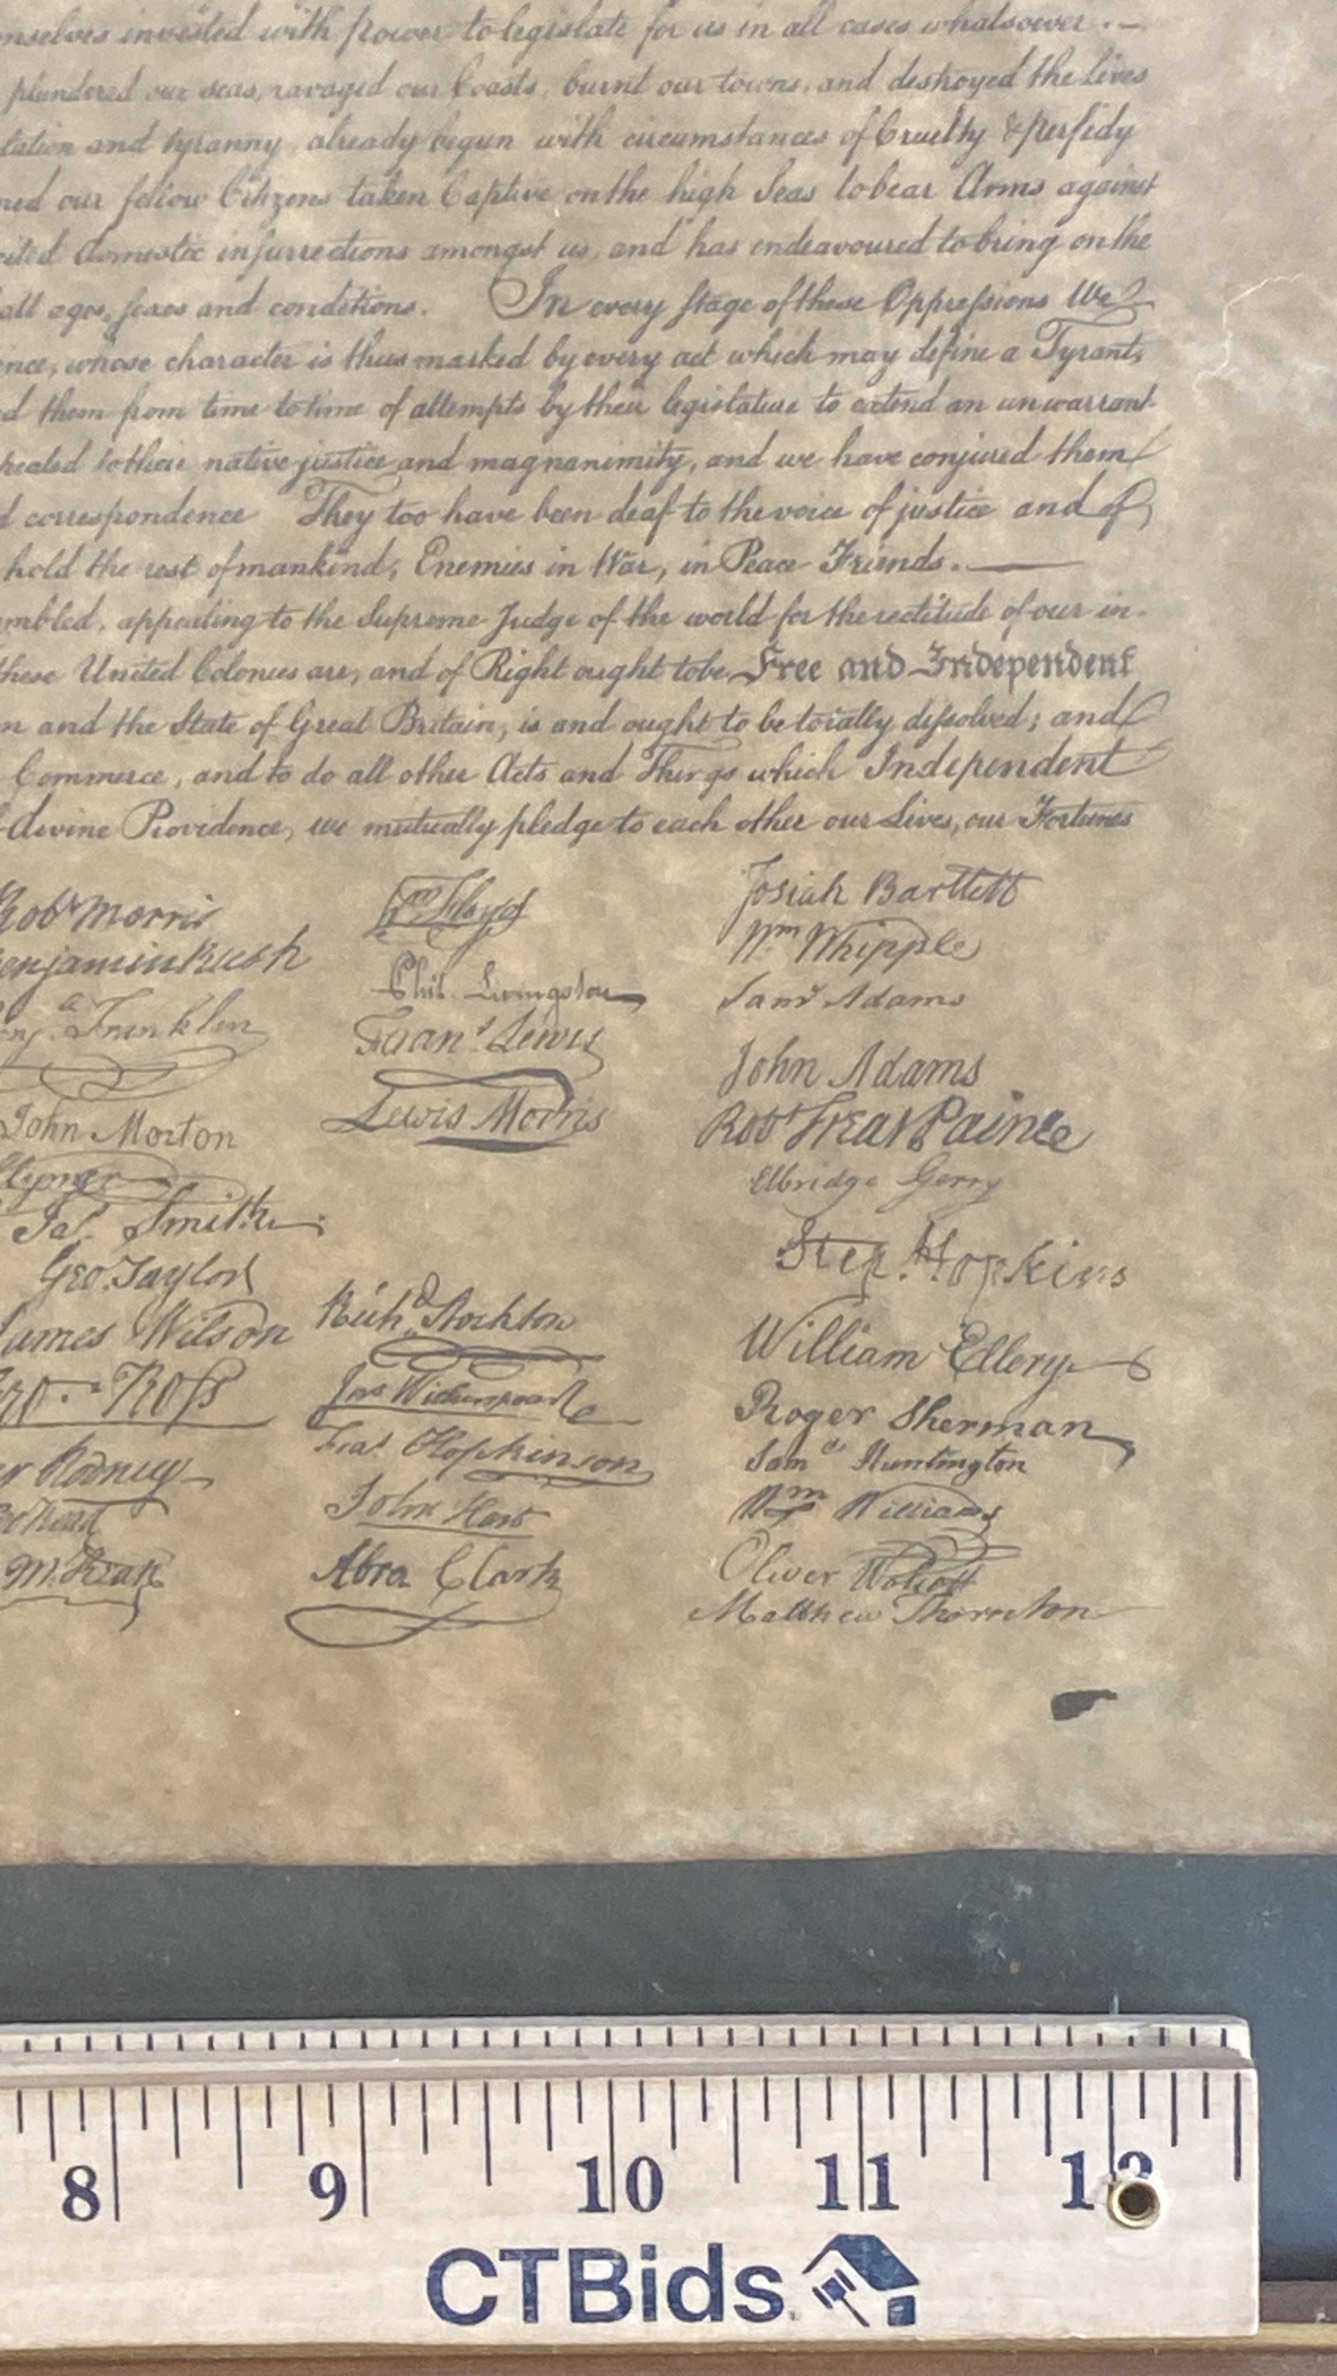 mselves invested with power to legislate for us in all cases whatsoever. —
plundered our seas, ravaged our Coasts, burnt our towns, and destroyed the Lives
lation and tyranny, already begun with circumstances of Cruelty & perfidy
ned our fellow Citizens taken Captive on the high Seas to bear Arms against
cited domestic insurrections amongst us, and has endeavoured to bring on the
all ages, sexes and conditions. In every stage of these Oppressions We
ince, whose character is thus marked by every act which may define a Tyrant,
d them from time to time of attempts by their legislature to extend an unwarrant-
pealed to their native justice and magnanimity, and we have conjured them
d correspondence They too have been deaf to the voice of justice and of
hold the rest of mankind, Enemies in War, in Peace Friends. —
mbled, appealing to the Supreme Judge of the world for the rectitude of our in-
these United Colonies are, and of Right ought to be Free and Independent
n and the State of Great Britain, is and ought to be totally dissolved; and
Commerce, and to do all other Acts and Things which Independent
divine Providence, we mutually pledge to each other our Lives, our Fortunes
Robt Morris
enjamin Rush
enj.a Franklin
John Morton
Clymer
Jas. Smith
Geo. Taylor
James Wilson
Geo. Ross
r Rodney
eo Read
M:Kean
Wm Floyd
Phil. Livingston
Frans. Lewis
Lewis Morris
Richd. Stockton
Jno Witherspoon
Fras. Hopkinson
John Hart
Abra Clark
Josiah Bartlett
Wm Whipple
Saml Adams
John Adams
Robt Treat Paine
Elbridge Gerry
Step. Hopkins
William Ellery
Roger Sherman
Saml Huntington
Wm Williams
Oliver Wolcott
Matthew Thornton
8 9 10 11 12
CTBids